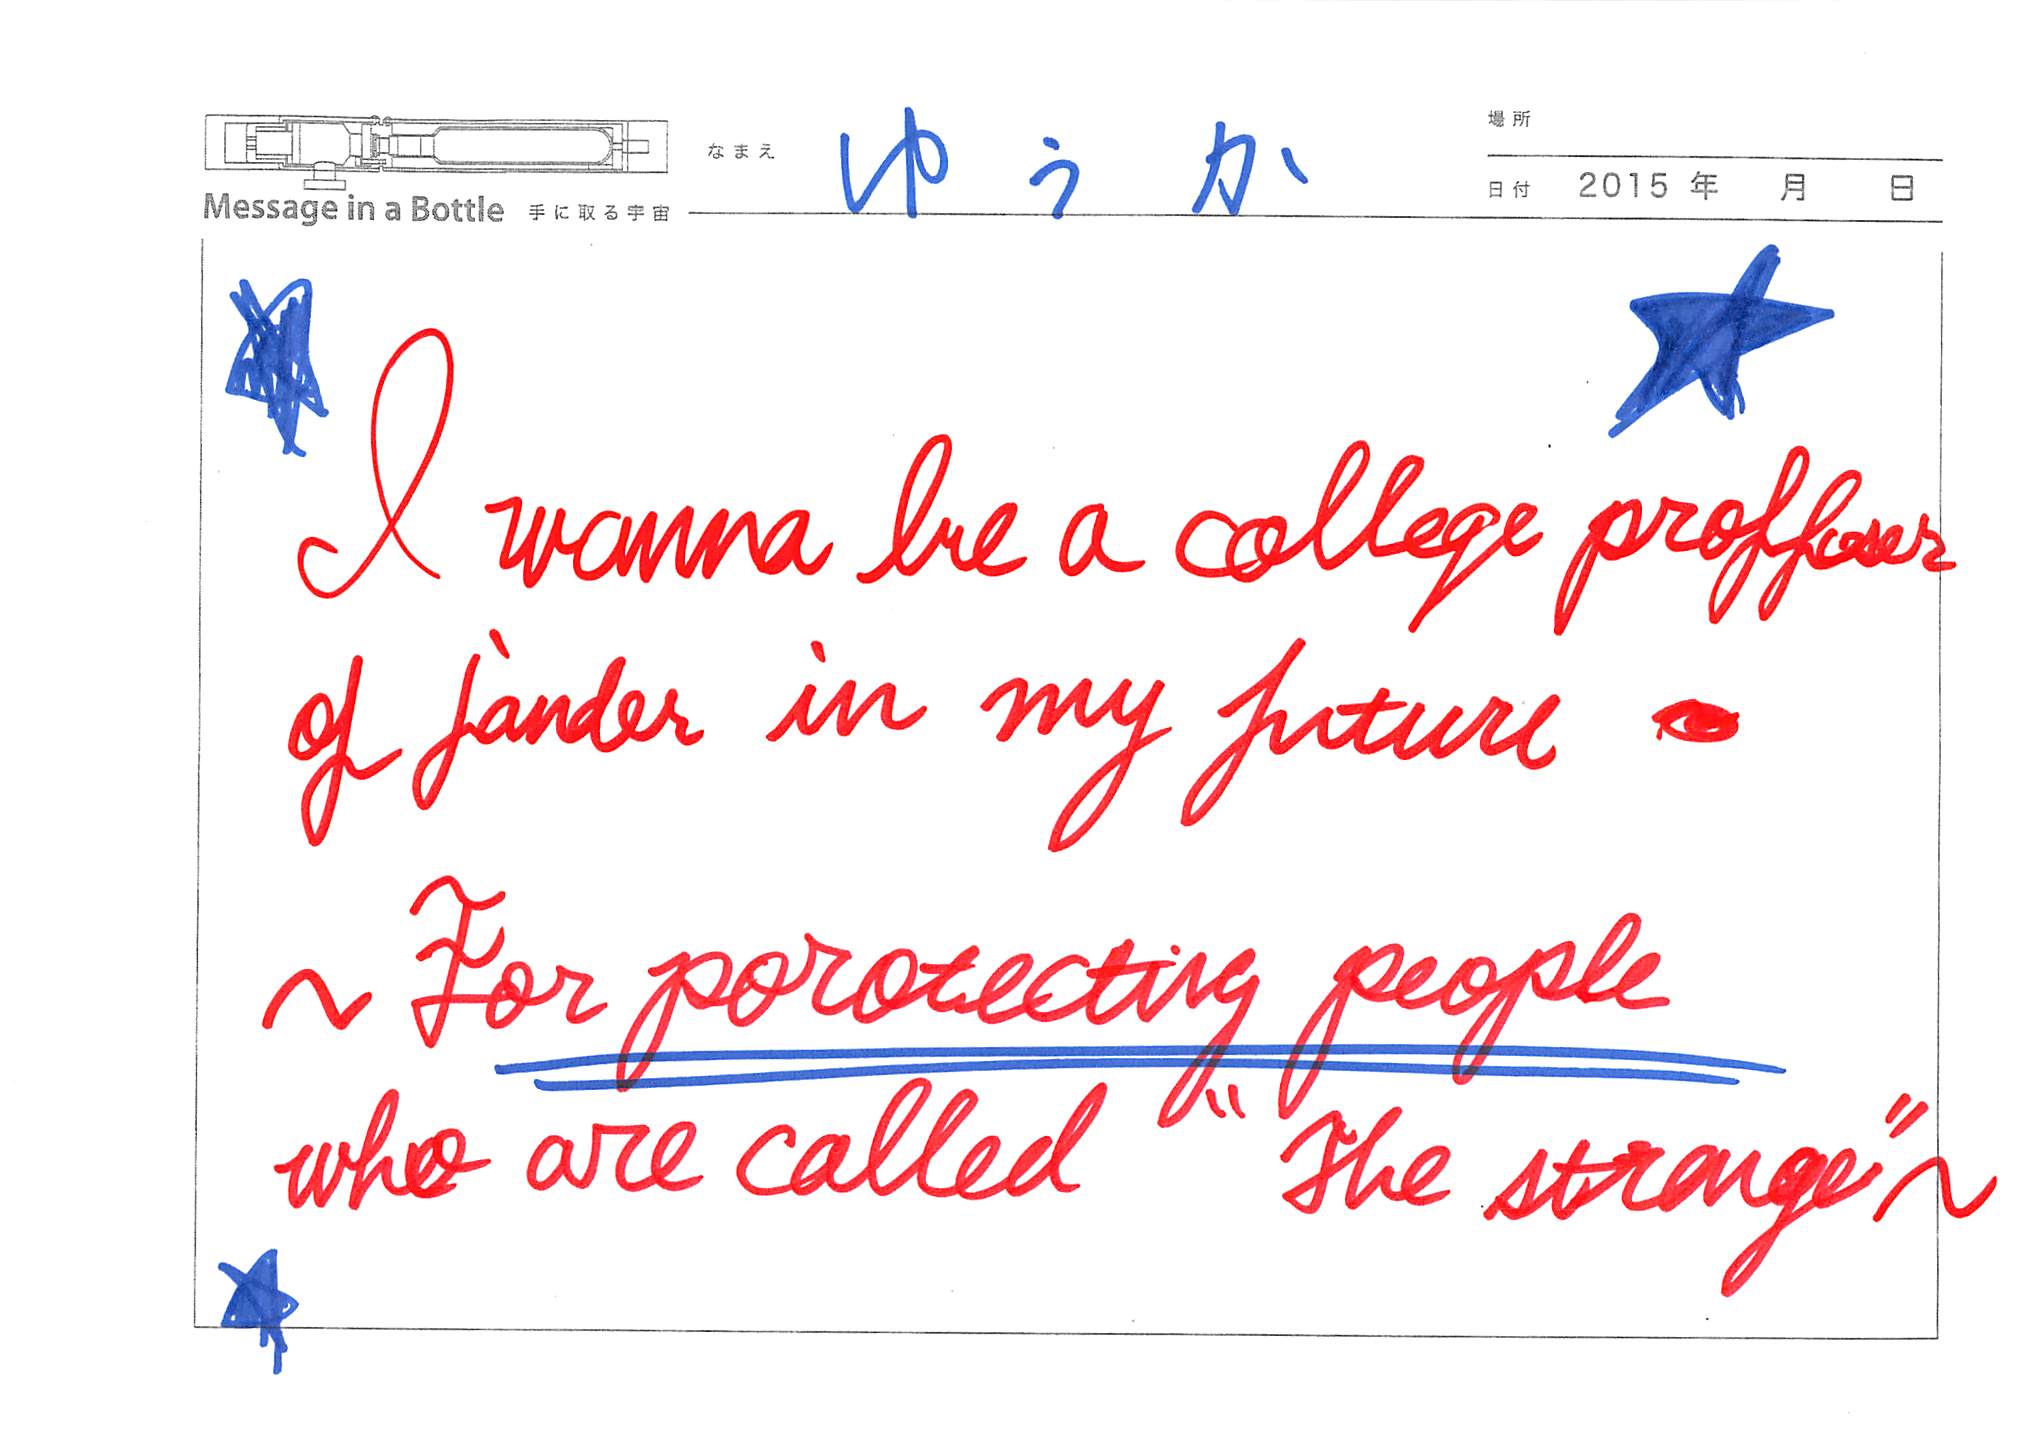 なまえ ゆうか
場所
日付 2015 年 月 日
Message in a Bottle 手に取る宇宙
I wanna be a college proffoser
of jander in my future
~ For porotecting people
who are called "The strange" ~